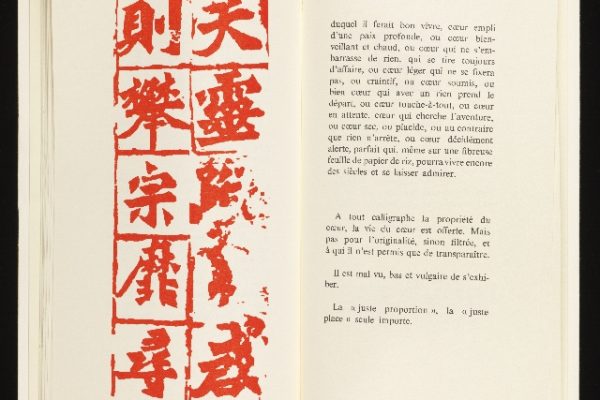 靈
則
攀
宗
靡
尋
duquel il ferait bon vivre, cœur empli
d'une paix profonde, ou cœur bien-
veillant et chaud, ou cœur qui ne s'em-
barrasse de rien, qui se tire toujours
d'affaire, ou cœur léger qui ne se fixera
pas, ou craintif, ou cœur soumis, ou
bien cœur qui avec un rien prend le
départ, ou cœur touche-à-tout, ou cœur
en attente, cœur qui cherche l'aventure,
ou cœur sec, ou placide, ou au contraire
que rien n'arrête, ou cœur décidément
alerte, parfait qui, même sur une fibreuse
feuille de papier de riz, pourra vivre encore
des siècles et se laisser admirer.
A tout calligraphe la propriété du
cœur, la vie du cœur est offerte. Mais
pas pour l'originalité, sinon filtrée, et
à qui il n'est permis que de transparaître.
Il est mal vu, bas et vulgaire de s'exhi-
ber.
La « juste proportion », la « juste
place » seule importe.